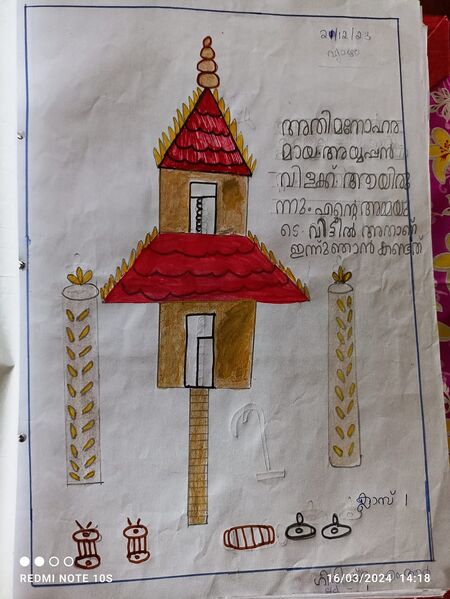 21/12/23
വ്യാഴം
അതിമനോഹര
മായ അയ്യപ്പൻ
വിളക്ക് ആയിരു
ന്നു. എന്റെ അമ്മയു
ടെ വീട്ടിൽ അതാണ്
ഇന്ന് ഞാൻ കണ്ടത്
ക്ലാസ് 1
REDMI NOTE 10S
16/03/2024 14:18